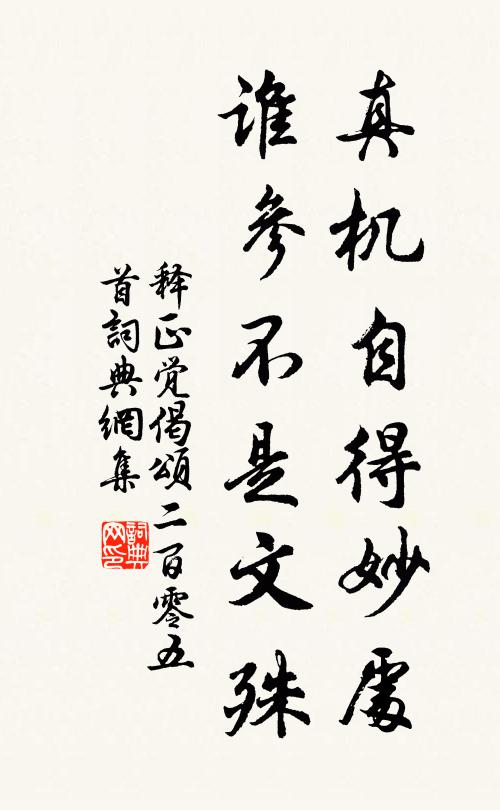 真机自得妙處
谁參不是文殊
释正觉偈頌二百零五
首詞典網集
詞典网印